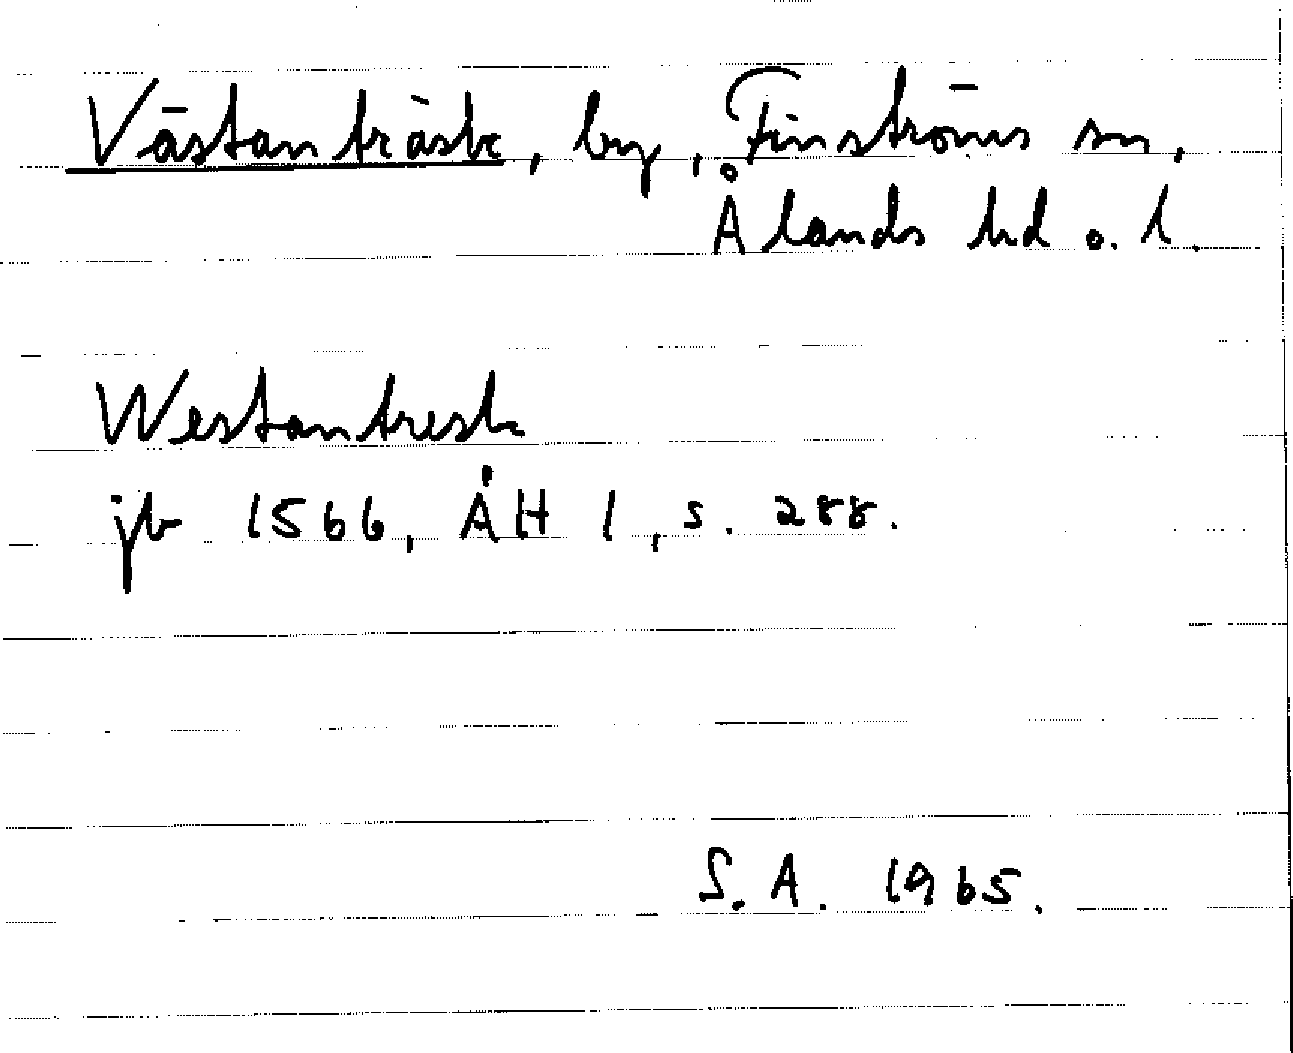 Västanträsk, by, Finströms sn,
Ålands hd o. l.
Westantresk
jb 1566, ÅH 1, s. 288.
S. A. 1965.